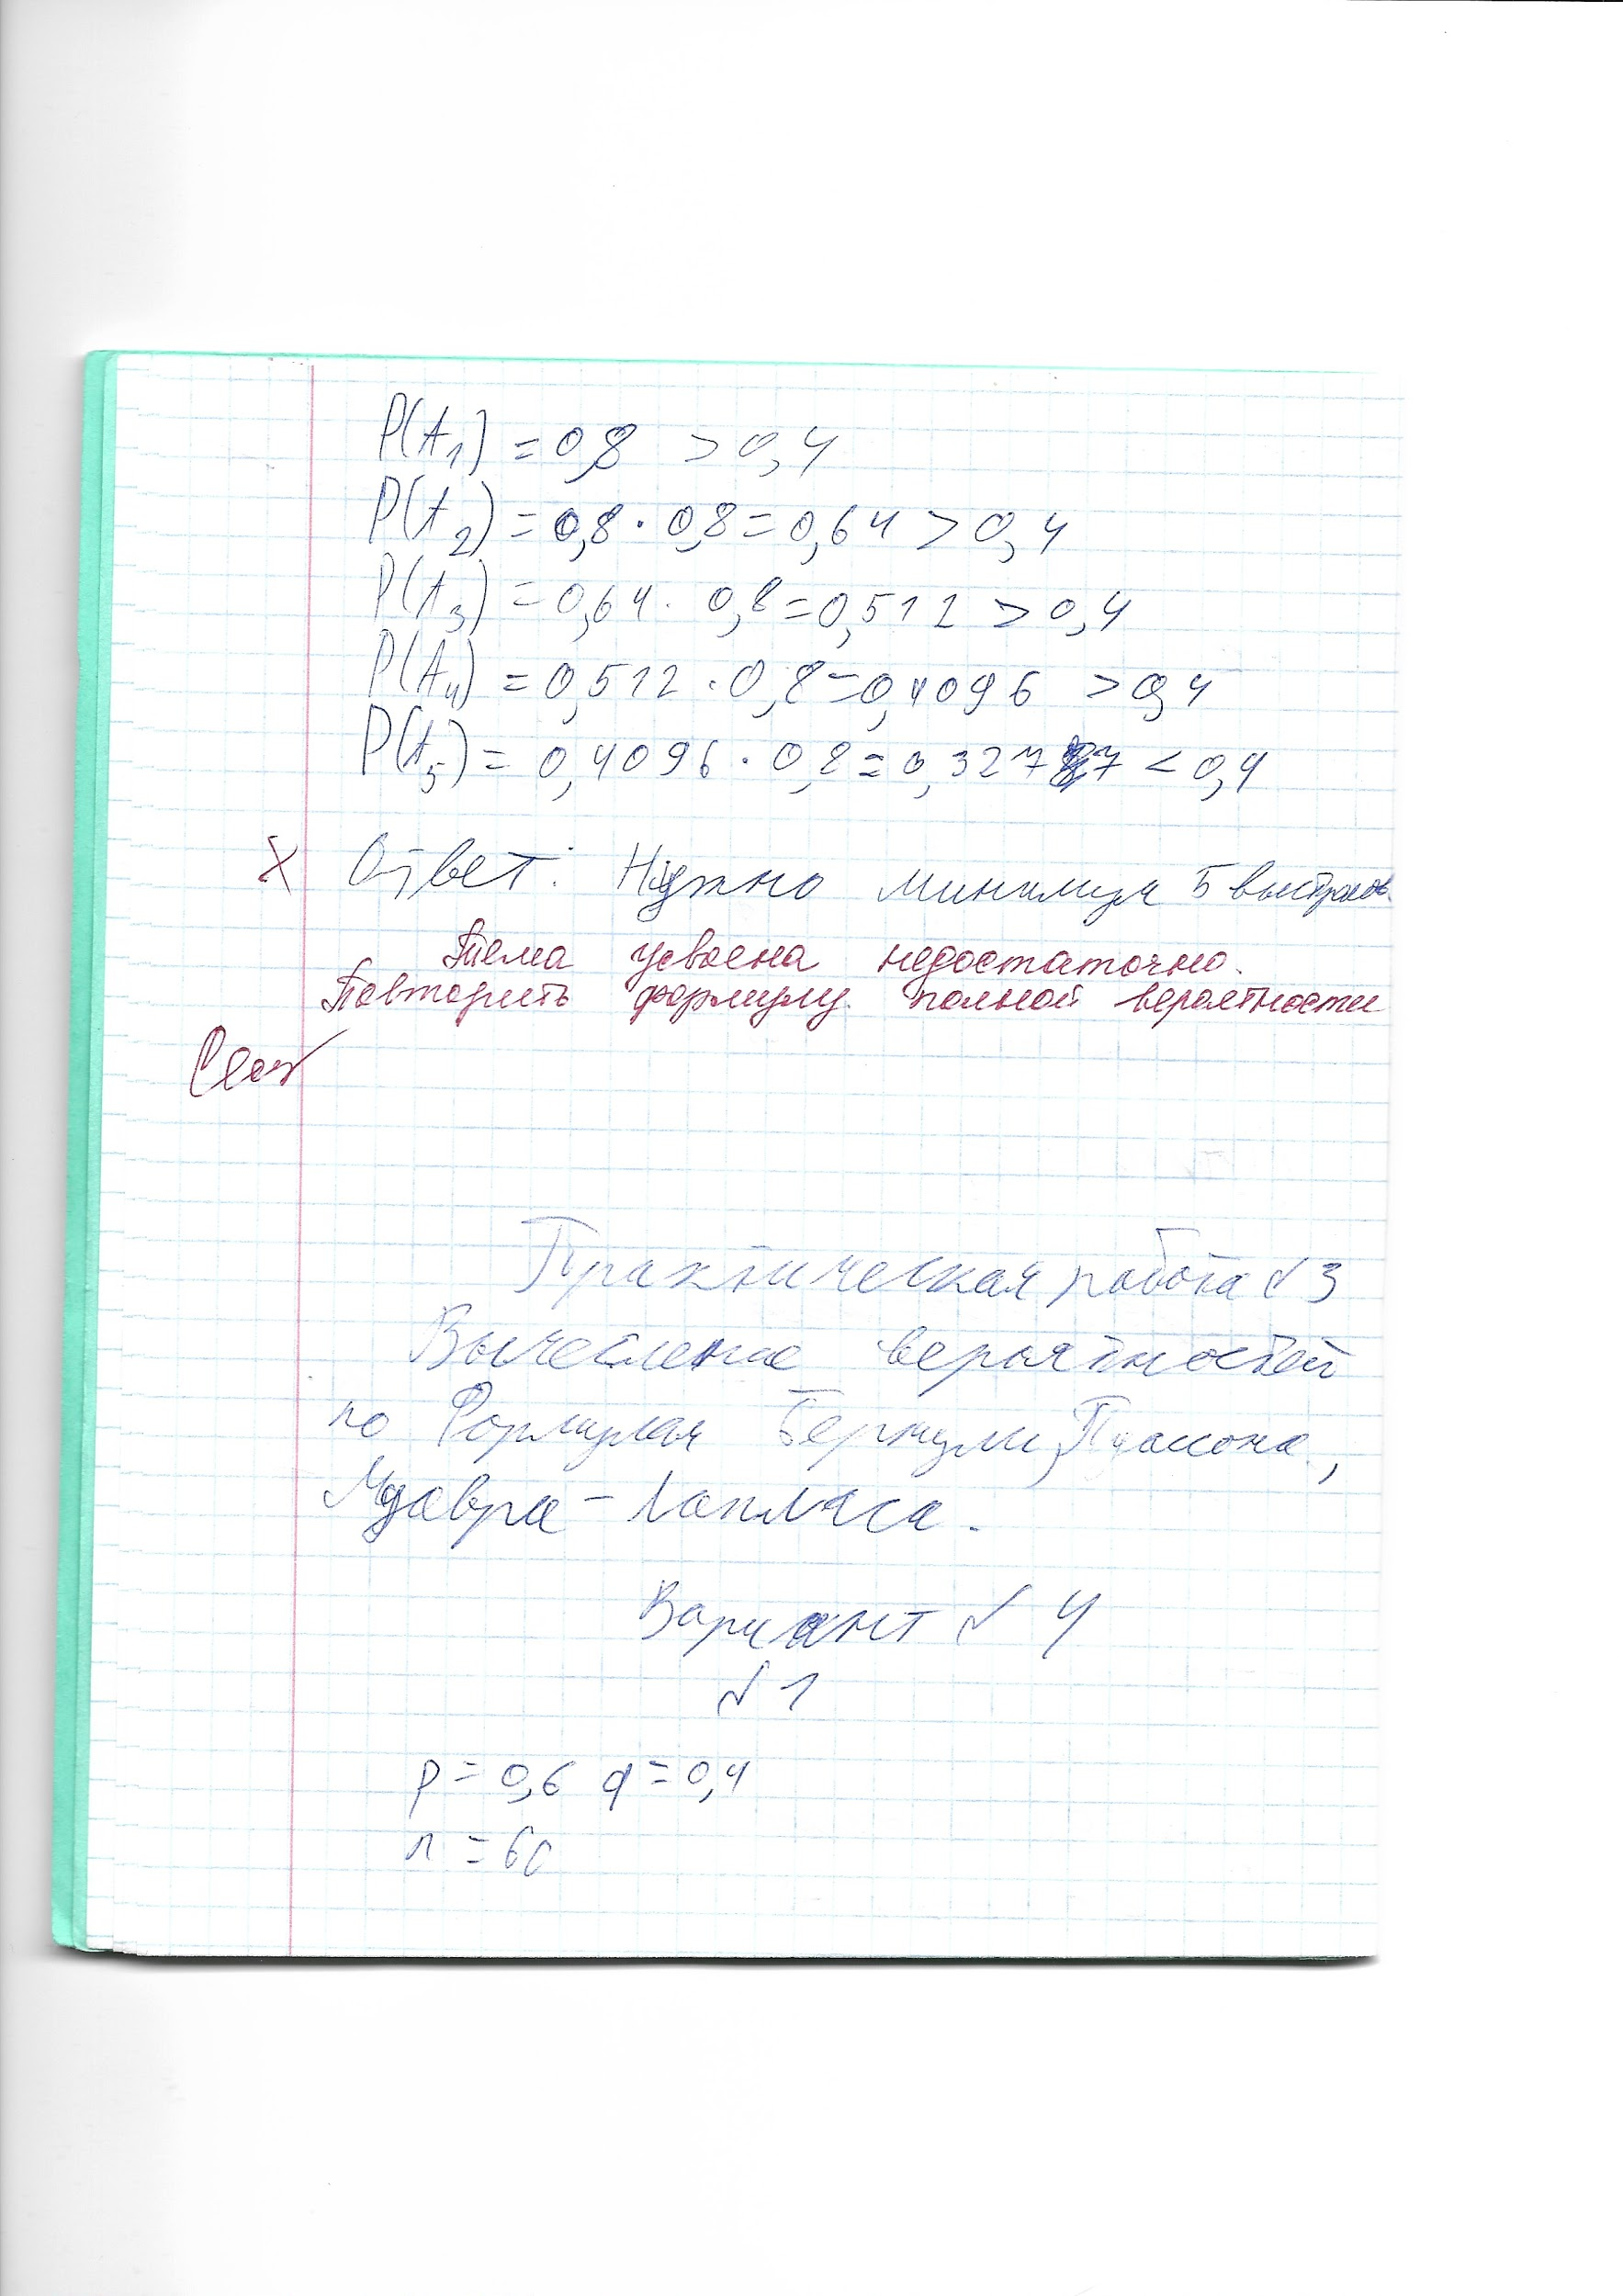 P(A₁) = 0,8 > 0,4
P(A₂) = 0,8 · 0,8 = 0,64 > 0,4
P(A₃) = 0,64 · 0,8 = 0,512 > 0,4
P(A₄) = 0,512 · 0,8 = 0,4096 > 0,4
P(A₅) = 0,4096 · 0,8 = 0,32777 < 0,4
Ответ: Нужно минимум 5 выстрелов.
Тема усвоена недостаточно.
Повторить формулу полной вероятности
Практическая работа №3
Вычесление вероятностей
по Формулам Бернули, Пуассона,
Муавра-Лапласа.
Вариант №4
№1
p = 0,6 q = 0,4
n = 60